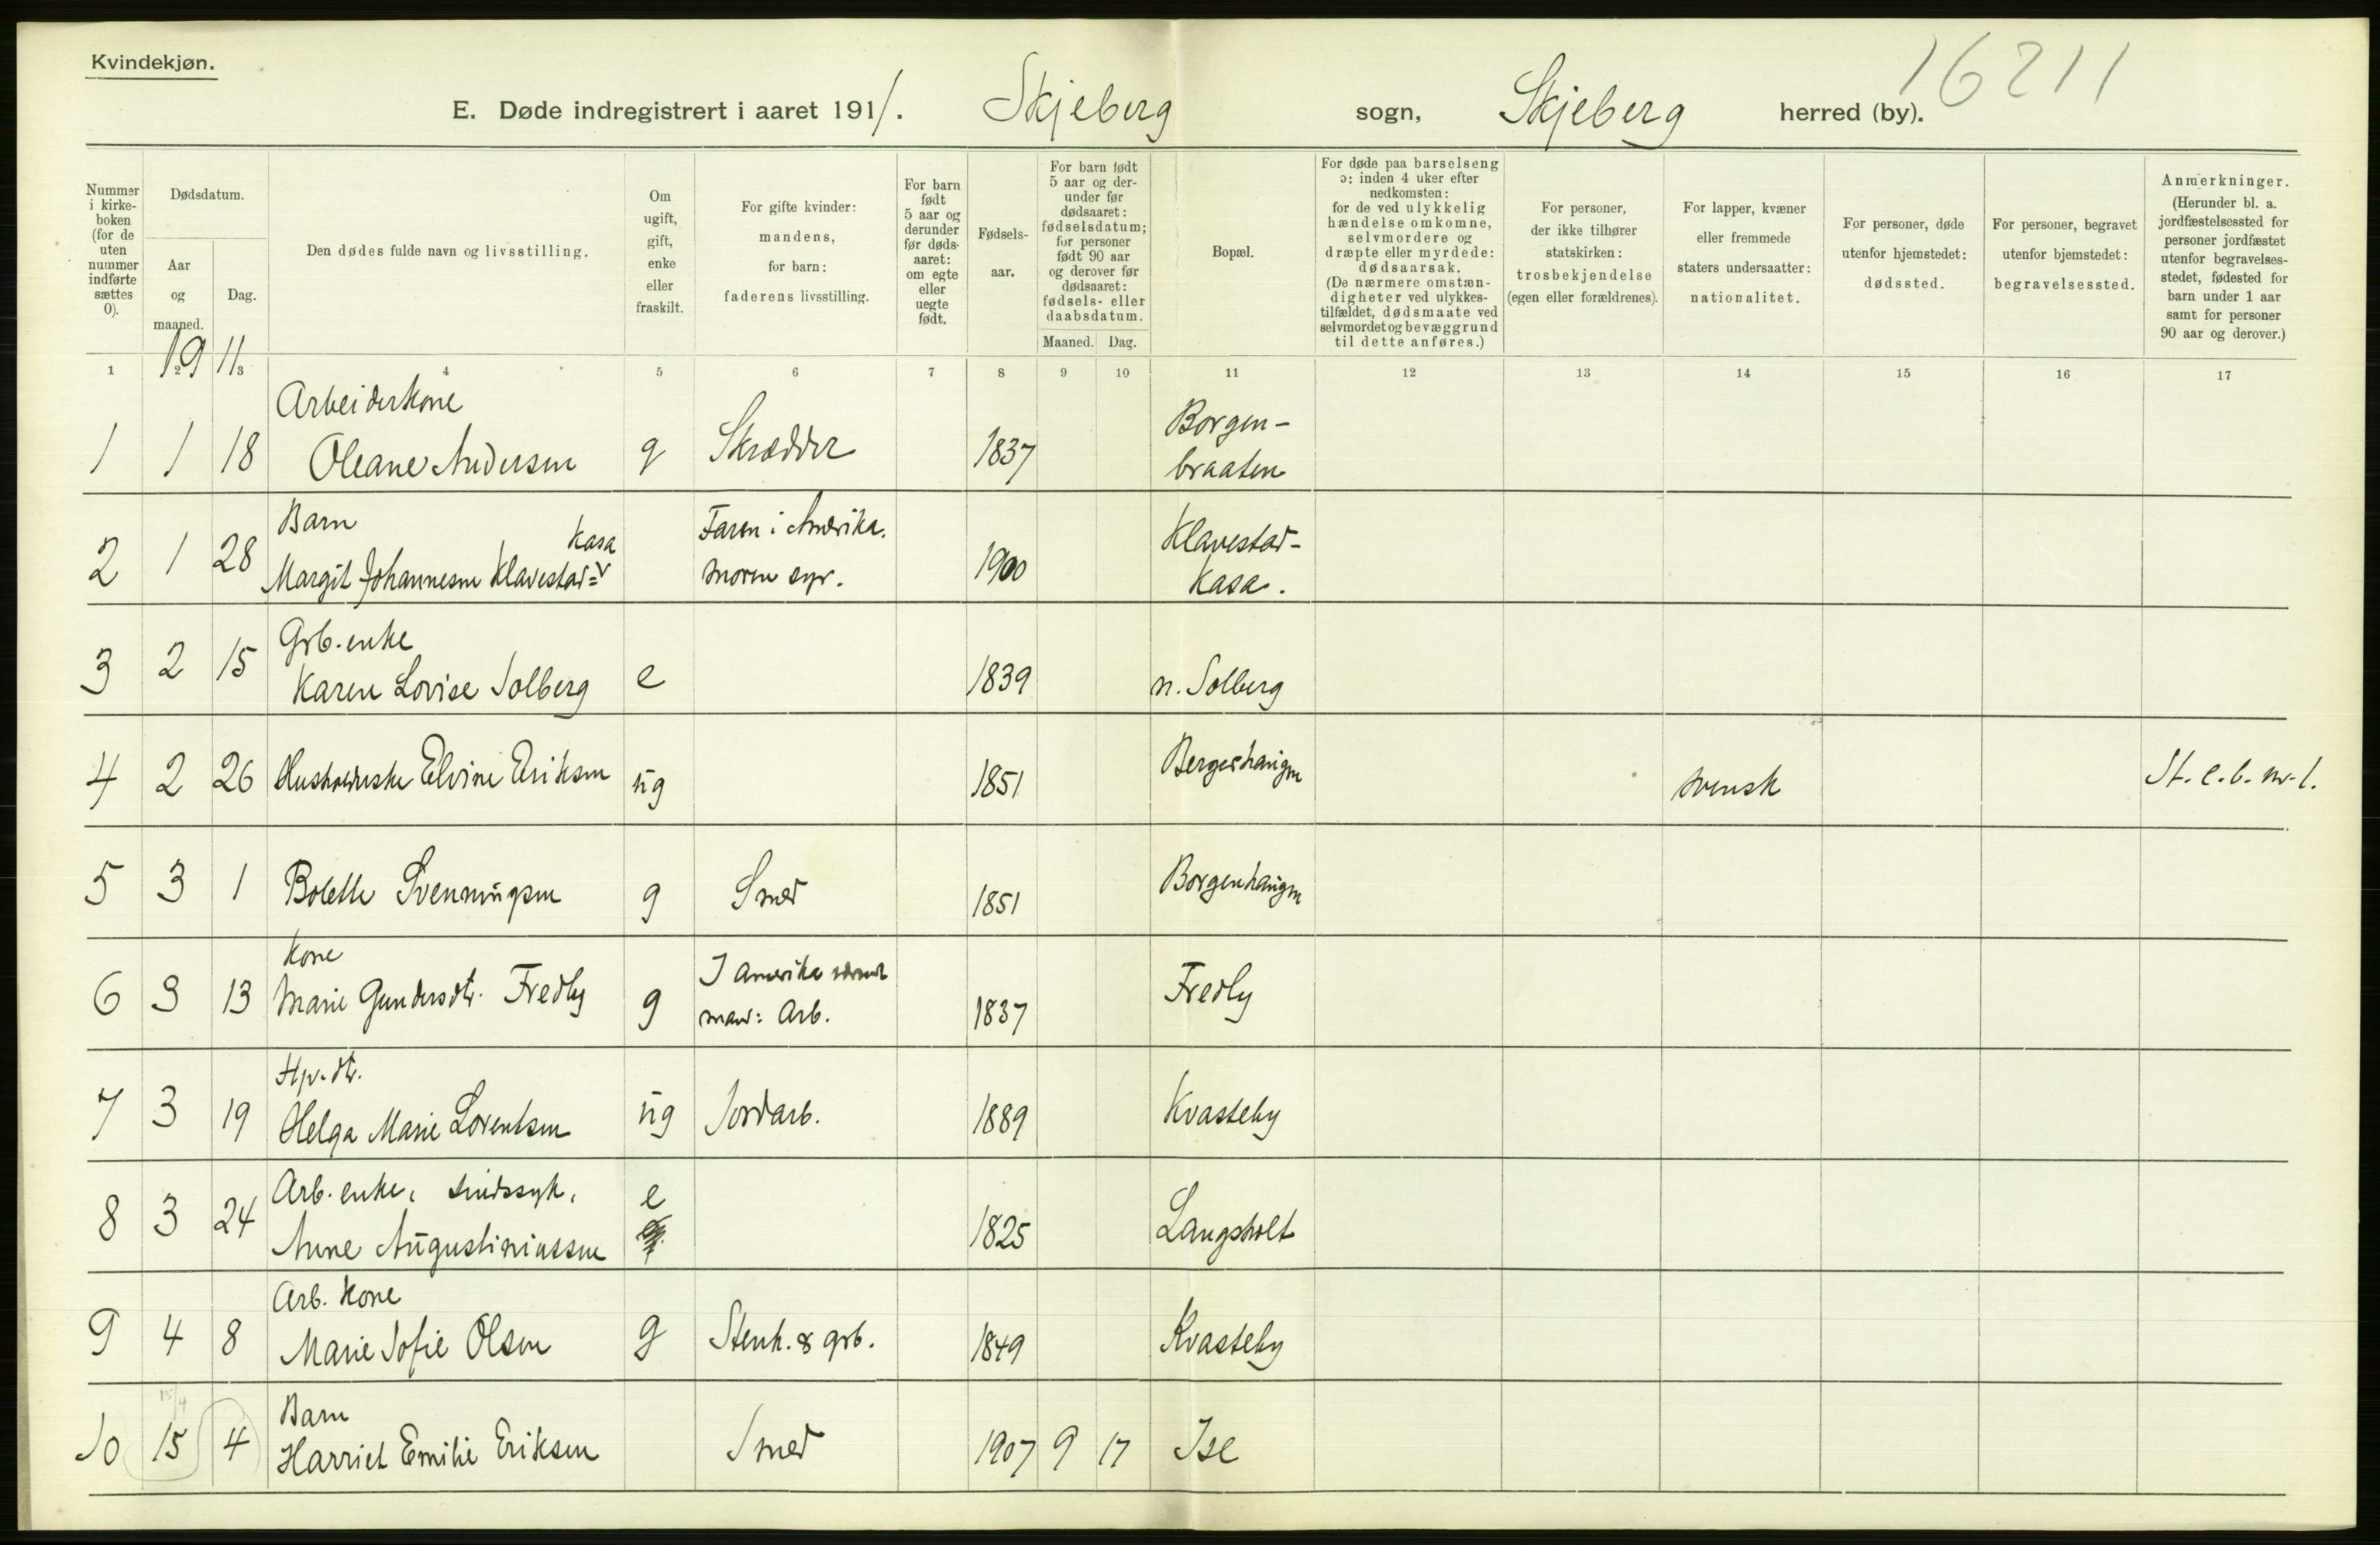 Kvindekjøn.
16211
E. Døde indregistrert i aaret 1911. Skjeberg sogn, Skjeberg herred (by).
Nummer i kirke- boken (for de uten nummer indførte sættes 0).
Dødsdatum.
Aar og maaned.
Dag.
Den dødes fulde navn og livsstilling.
Om ugift, gift, enke eller fraskilt.
For gifte kvinder: mandens, for barn: faderens livsstilling.
For barn født 5 aar og derunder før døds- aaret: om egte eller uegte født.
Fødsels- aar.
For barn født 5 aar og der- under før dødsaaret: fødselsdatum; for personer født 90 aar og derover før dødsaaret: fødsels- eller daabsdatum.
Maaned. Dag.
Bopæl.
For døde paa barselseng ɔ: inden 4 uker efter nedkomsten: for de ved ulykkelig hændelse omkomne, selvmordere og dræpte eller myrdede: dødsaarsak. (De nærmere omstæn- digheter ved ulykkes- tilfældet, dødsmaate ved selvmordet og bevæggrund til dette anføres.)
For personer, der ikke tilhører statskirken: trosbekjendelse (egen eller forældrenes).
For lapper, kvæner eller fremmede staters undersaatter: nationalitet.
For personer, døde utenfor hjemstedet: dødssted.
For personer, begravet utenfor hjemstedet: begravelsessted.
Anmerkninger. (Herunder bl. a. jordfæstelsessted for personer jordfæstet utenfor begravelses- stedet, fødested for barn under 1 aar samt for personer 90 aar og derover.)
1911
1 2 3 4 5 6 7 8 9 10 11 12 13 14 15 16 17
Arbeiderkone Borgen-
1 1 18 Oleane Andersen g Skrædder 1837 braaten
Barn Kasa Faren i Amerika. Klavestad-
2 1 28 Margit Johannesen Klavestad= moren syr. 1900 Kasa.
Grb. enke
3 2 15 Karen Lovise Solberg e 1839 n. Solberg
4 2 26 Husholderske Elvine Eriksen ug 1851 Bergerhaugen svensk St. e. b. nr. 1.
5 3 1 Bolette Svenningsen g Smed 1851 Borgenhaugen
Kone I Amerika
6 3 13 Marie Gundersdtr. Fredly g man: Arb. 1837 Fredly
Hp. dtr.
7 3 19 Helga Marie Lorentsen ug Jordarb. 1889 Kvasteby
Arb. enke, sindssyk, e
8 3 24 Anne Augustiniussen 1825 Langsholt
Arb. Kone
9 4 8 Marie Sofie Olsen g Stenh. & grb. 1849 Kvasteby
15/4
Barn
10 15 4 Harriet Emilie Eriksen Smed 1907 9 17 Ise